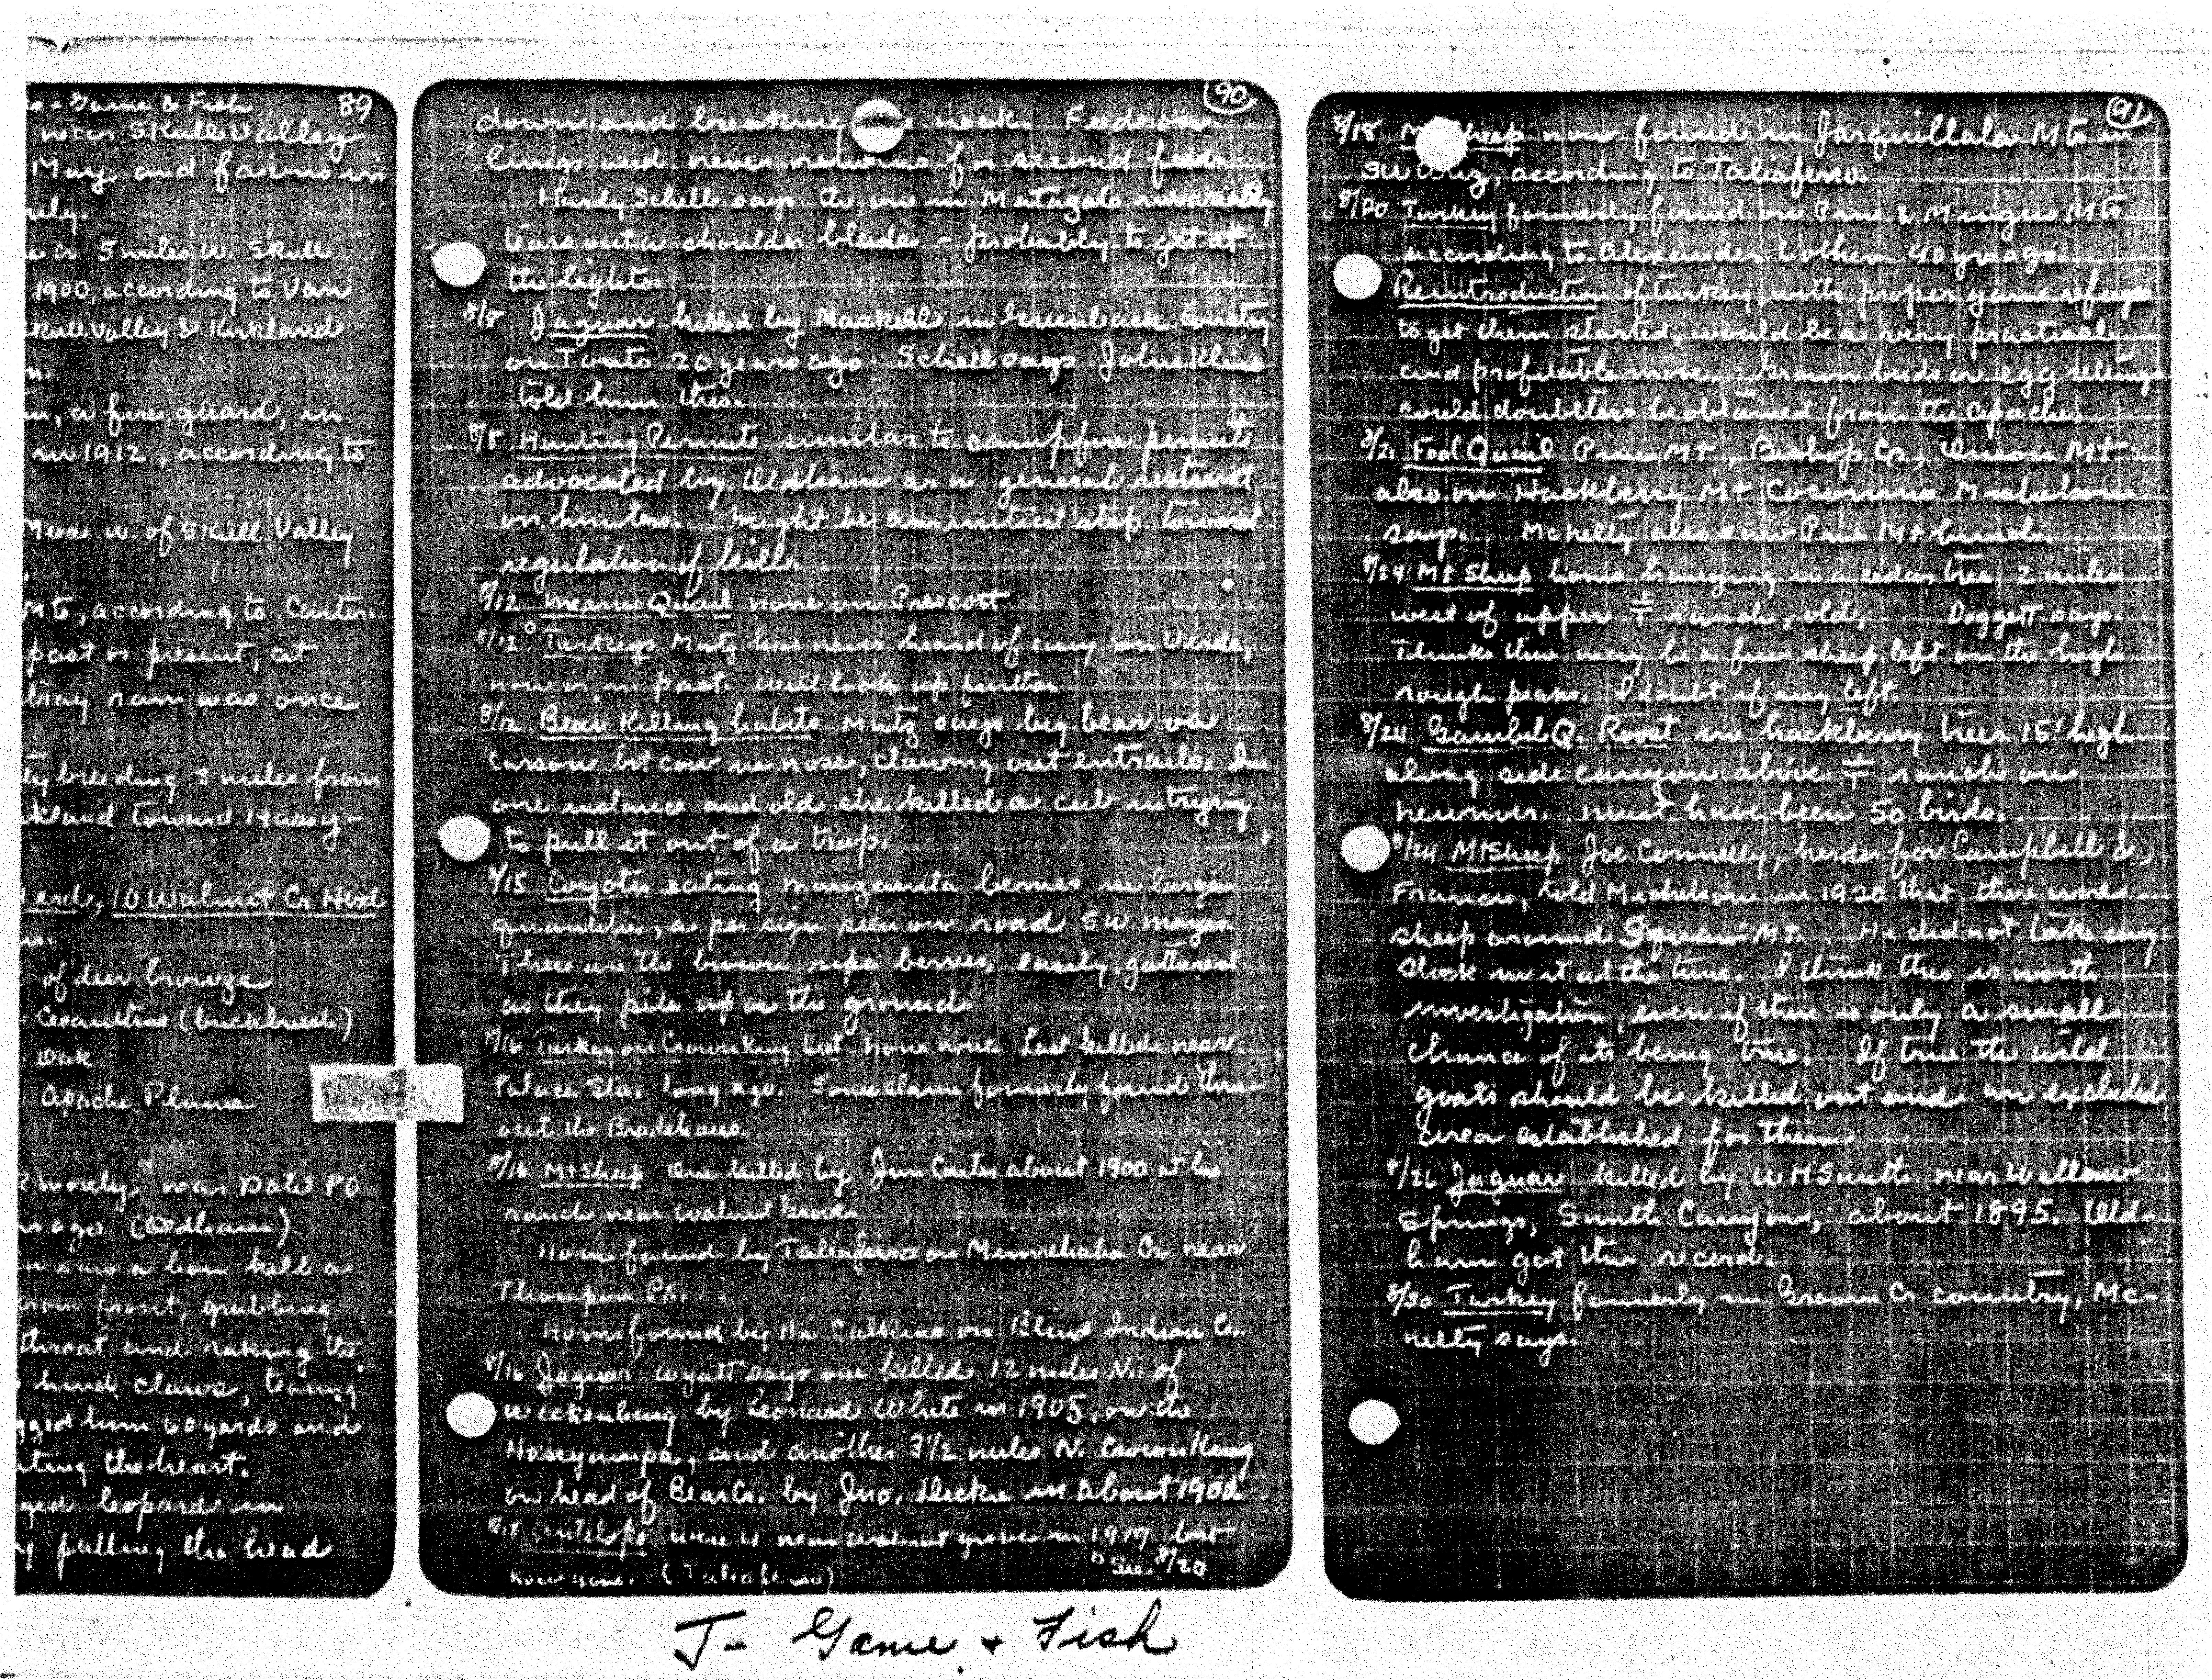 - Game & Fish 89
near Skull Valley
May and fawns in
5 miles W. Skull
1900, according to Van
Skull Valley & Kirkland
a fire guard, in
in 1912, according to
Mesa W. of Skull Valley
Mts, according to Carter.
past or present, at
ram was once
breeding 3 miles from
toward Hassy-
10 Walnut Cr Herd
of deer browze
Ceanothus (buckbrush)
Oak
Apache Plume
near Datil PO
ago (Oldham)
saw a lion kill a
from front, grabbing
throat and raking the
hind claws, tearing
him 60 yards and
the heart.
leopard in
pulling the head
90
down and breaking neck. Feeds on
lungs and never returns for second feed.
Hardy Schell says the one in Matazals invariably
tears out a shoulder blade - probably to get at
the lights.
8/8 Jaguar killed by Haskell in Greenback country
on Tonto 20 years ago. Schell says John Kline
told him this.
8/8 Hunting Permits similar to campfire permits
advocated by Oldham as a general restraint
on hunters. Might be an initial step toward
regulation of kill.
8/12 Mearns Quail none on Prescott
8/12° Turkeys Mutz has never heard of any on Verde,
now or in past. Will look up further.
8/12 Bear Killing habits Mutz says big bear on
Carson bit cow in nose, clawing out entrails. In
one instance and old she killed a cub in trying
to pull it out of a trap.
8/15 Coyotes eating manzanita berries in large
quantities, as per sign seen on road SW Mayer.
These are the brown ripe berries, easily gathered
as they pile up on the ground.
8/16 Turkey on Crown King Dist None now. Last killed near
Palace Sta. long ago. Some claim formerly found thru-
out the Bradshaws.
8/16 Mt Sheep One killed by Jim Carter about 1900 at his
ranch near Walnut Grove.
Horns found by Taliaferro on Minnehaha Cr. near
Thompson Pk.
Horns found by Hi Calkins on Blind Indian Cr.
8/16 Jaguar Wyatt says one killed 12 miles N. of
Wickenburg by Leonard White in 1905, on the
Hassyampa, and another 3 1/2 miles N. Crown King
on head of Bear Cr. by Jno. Dickie in about 1900
8/18 Antelope were near Walnut Grove in 1919, but
now gone. (Taliaferro) ° See 8/20
91
8/18 Sheep now found in Jarquillala Mts in
SW Ariz, according to Taliaferro.
8/20 Turkey formerly found on Pine & Mingus Mts
according to Alexander & others 40 yrs ago.
Reintroduction of turkey, with proper game refuge
to get them started, would be a very practical
and profitable move. Grown birds or egg settings
could doubtless be obtained from the Apache.
8/21 Fool Quail Pine Mt, Bishop Cr, Union Mt
also on Hackberry Mt Coconino Michelson
says. McNelty also saw Pine Mt bunch.
8/24 Mt Sheep horns hanging in a cedar tree 2 miles
west of upper ranch, old, Doggett says.
Thinks there may be a few sheep left on the high
rough peaks. I doubt if any left.
8/24 Gambel Q. Roost in hackberry trees 15' high
along side canyon above ranch on
new river. Must have been 50 birds.
8/24 Mt Sheep Joe Connelly, herder for Campbell &
Francis, told Michelson in 1920 that there were
sheep around Squaw Mt. He did not take any
stock in it at the time. I think this is worth
investigation, even if there is only a small
chance of its being true. If true the wild
goats should be killed out and an excluded
area established for them.
8/26 Jaguar killed by W H Smith near Willow
Springs, Smith Canyon, about 1895. Old-
ham got this record.
8/30 Turkey formerly in Groom Cr country, Mc-
nelty says.
J- Game + Fish